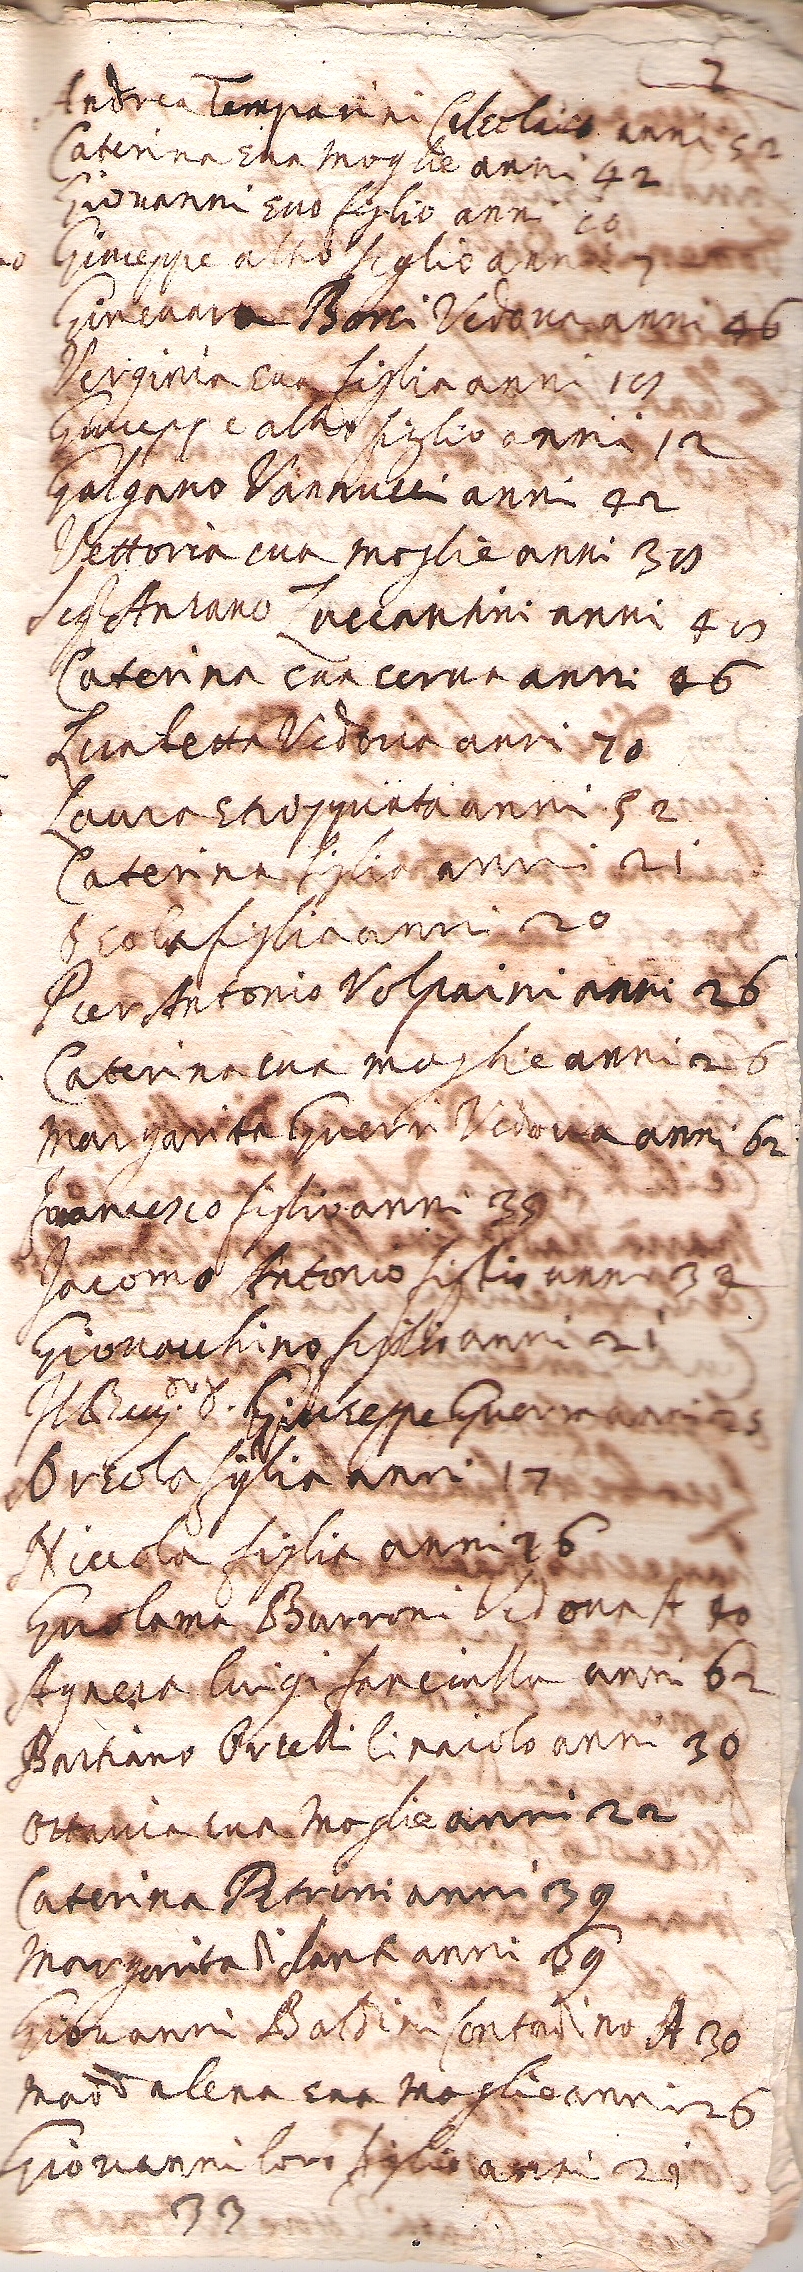 2
Andrea Temparini Calcolaio anni 52
Caterina sua moglie anni 42
Giovanni suo figlio anni 10
Giuseppe altro figlio anni 7
Ginevara Borci Vedova anni 46
Verginia sua figlia anni 15
Giuseppe altro figlio anni 12
Galgano Vannucci anni 42
Vettoria sua moglie anni 35
Ansano Luccantini anni 45
Caterina sua cerva anni 46
Lisabetta Vedova anni 70
Laura Stroppiata anni 52
Caterina figlia anni 21
figlia anni 20
Pier Antonio Volpaini anni 26
Caterina sua moglie anni 26
Margarita Guerri Vedova anni 62
Francesco figlio anni 35
Jacomo Antonio figlio anni 32
Giovacchino figlio anni 21
Il Giuseppe Guerra anni 25
Orsola figlia anni 17
Niccola figlia anni 26
Girolama Burroni Vedova A 40
Agnesa luigi fanciulla anni 62
Bastiano Orcelli linaiolo anni 30
Ottavia sua Moglie anni 22
Caterina Petrini anni 39
Margarita di Sante anni 69
Giovanni Baldini Contadino A 30
Maddalena sua Moglie anni 26
Giovanni loro figlio anni 21
33